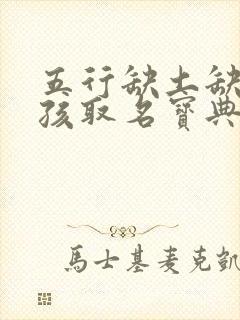 五行缺土缺
孩取名寶典
馬士基麦克凱